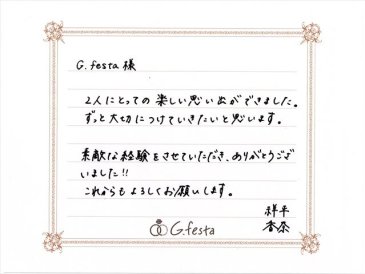 G.festa 様
2人にとっての楽しい思い出ができました。
ずっと大切につけていきたいと思います。
素敵な経験をさせていただき、ありがとうござ
いました!!
これからもよろしくお願いします。
祥平
杏奈
G.festa